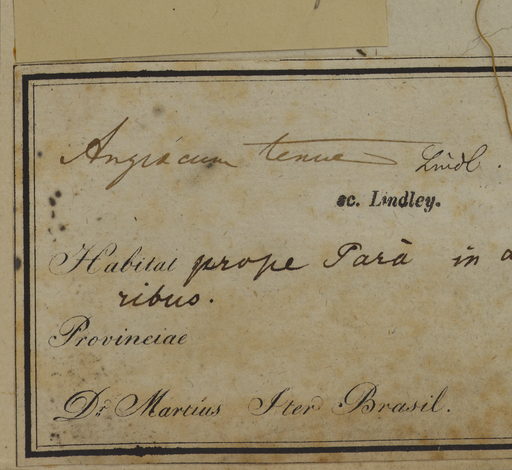 Angræcum tenue Lindl.
sc. Lindley.
Habitat prope Parà in a
ribus.
Provinciae
Dr. Martius Iter Brasil.